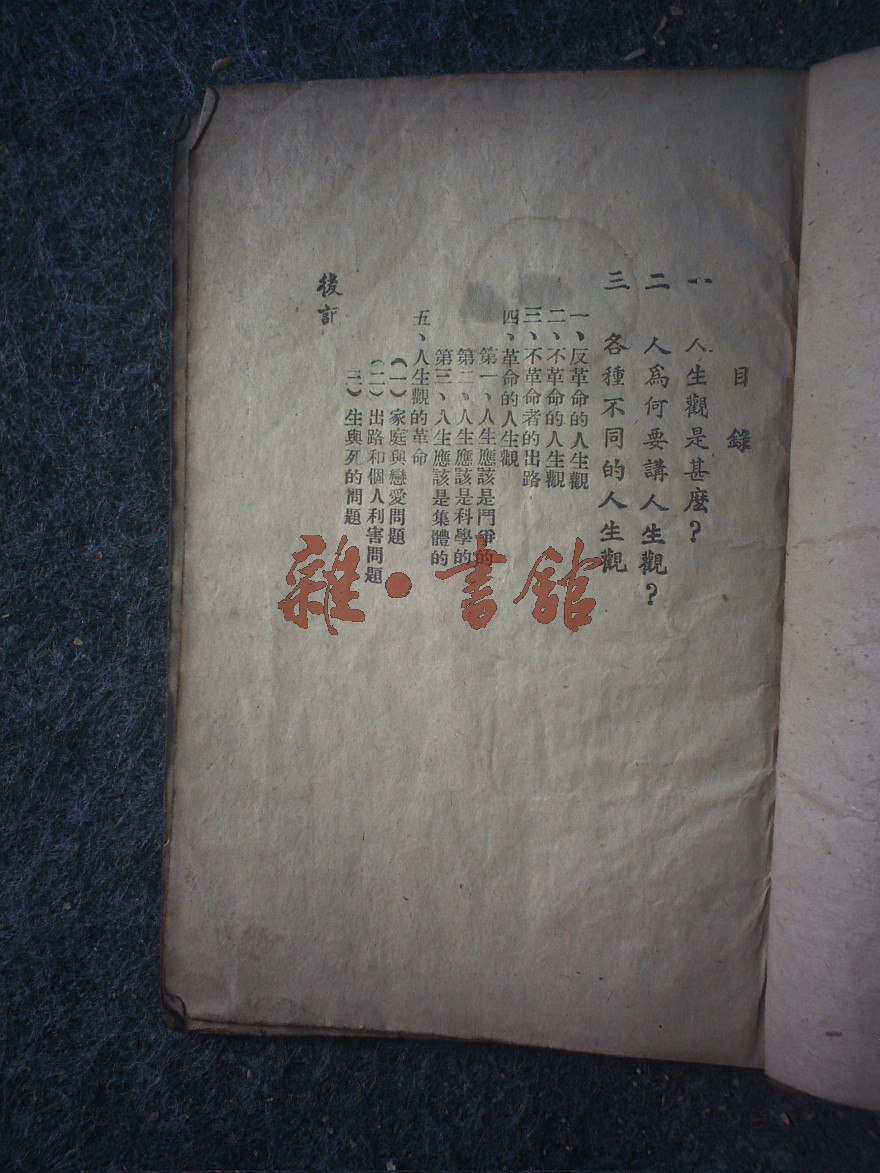 目錄
一 人生觀是甚麽？
二 人爲何要講人生觀？
三 各種不同的人生觀
一、反革命的人生觀
二、不革命的人生觀
三、不革命者的出路
四、革命的人生觀
第一、人生應該是鬥爭的
第二、人生應該是科學的
第三、人生應該是集體的
五、人生觀的革命
（一）家庭與戀愛問題
（二）出路和個人利害問題
三）生與死的問題
後記
雜·書館